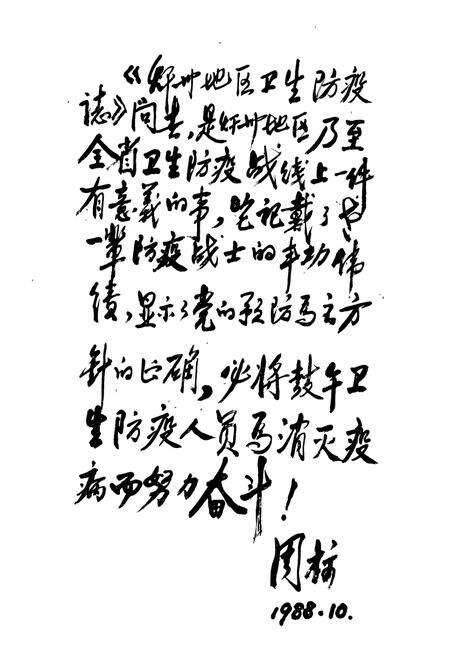 《州地区卫生防疫
誌》问世,是州地区乃至
全省卫生防疫战线上一件
有意義的事,它记戴了老
一輩防疫战士的丰功伟
绩,显示了党的预防为主方
针的正确,必将鼓午卫
生防疫人员为消灭疫
病而努力奋斗!
周
1988.10.